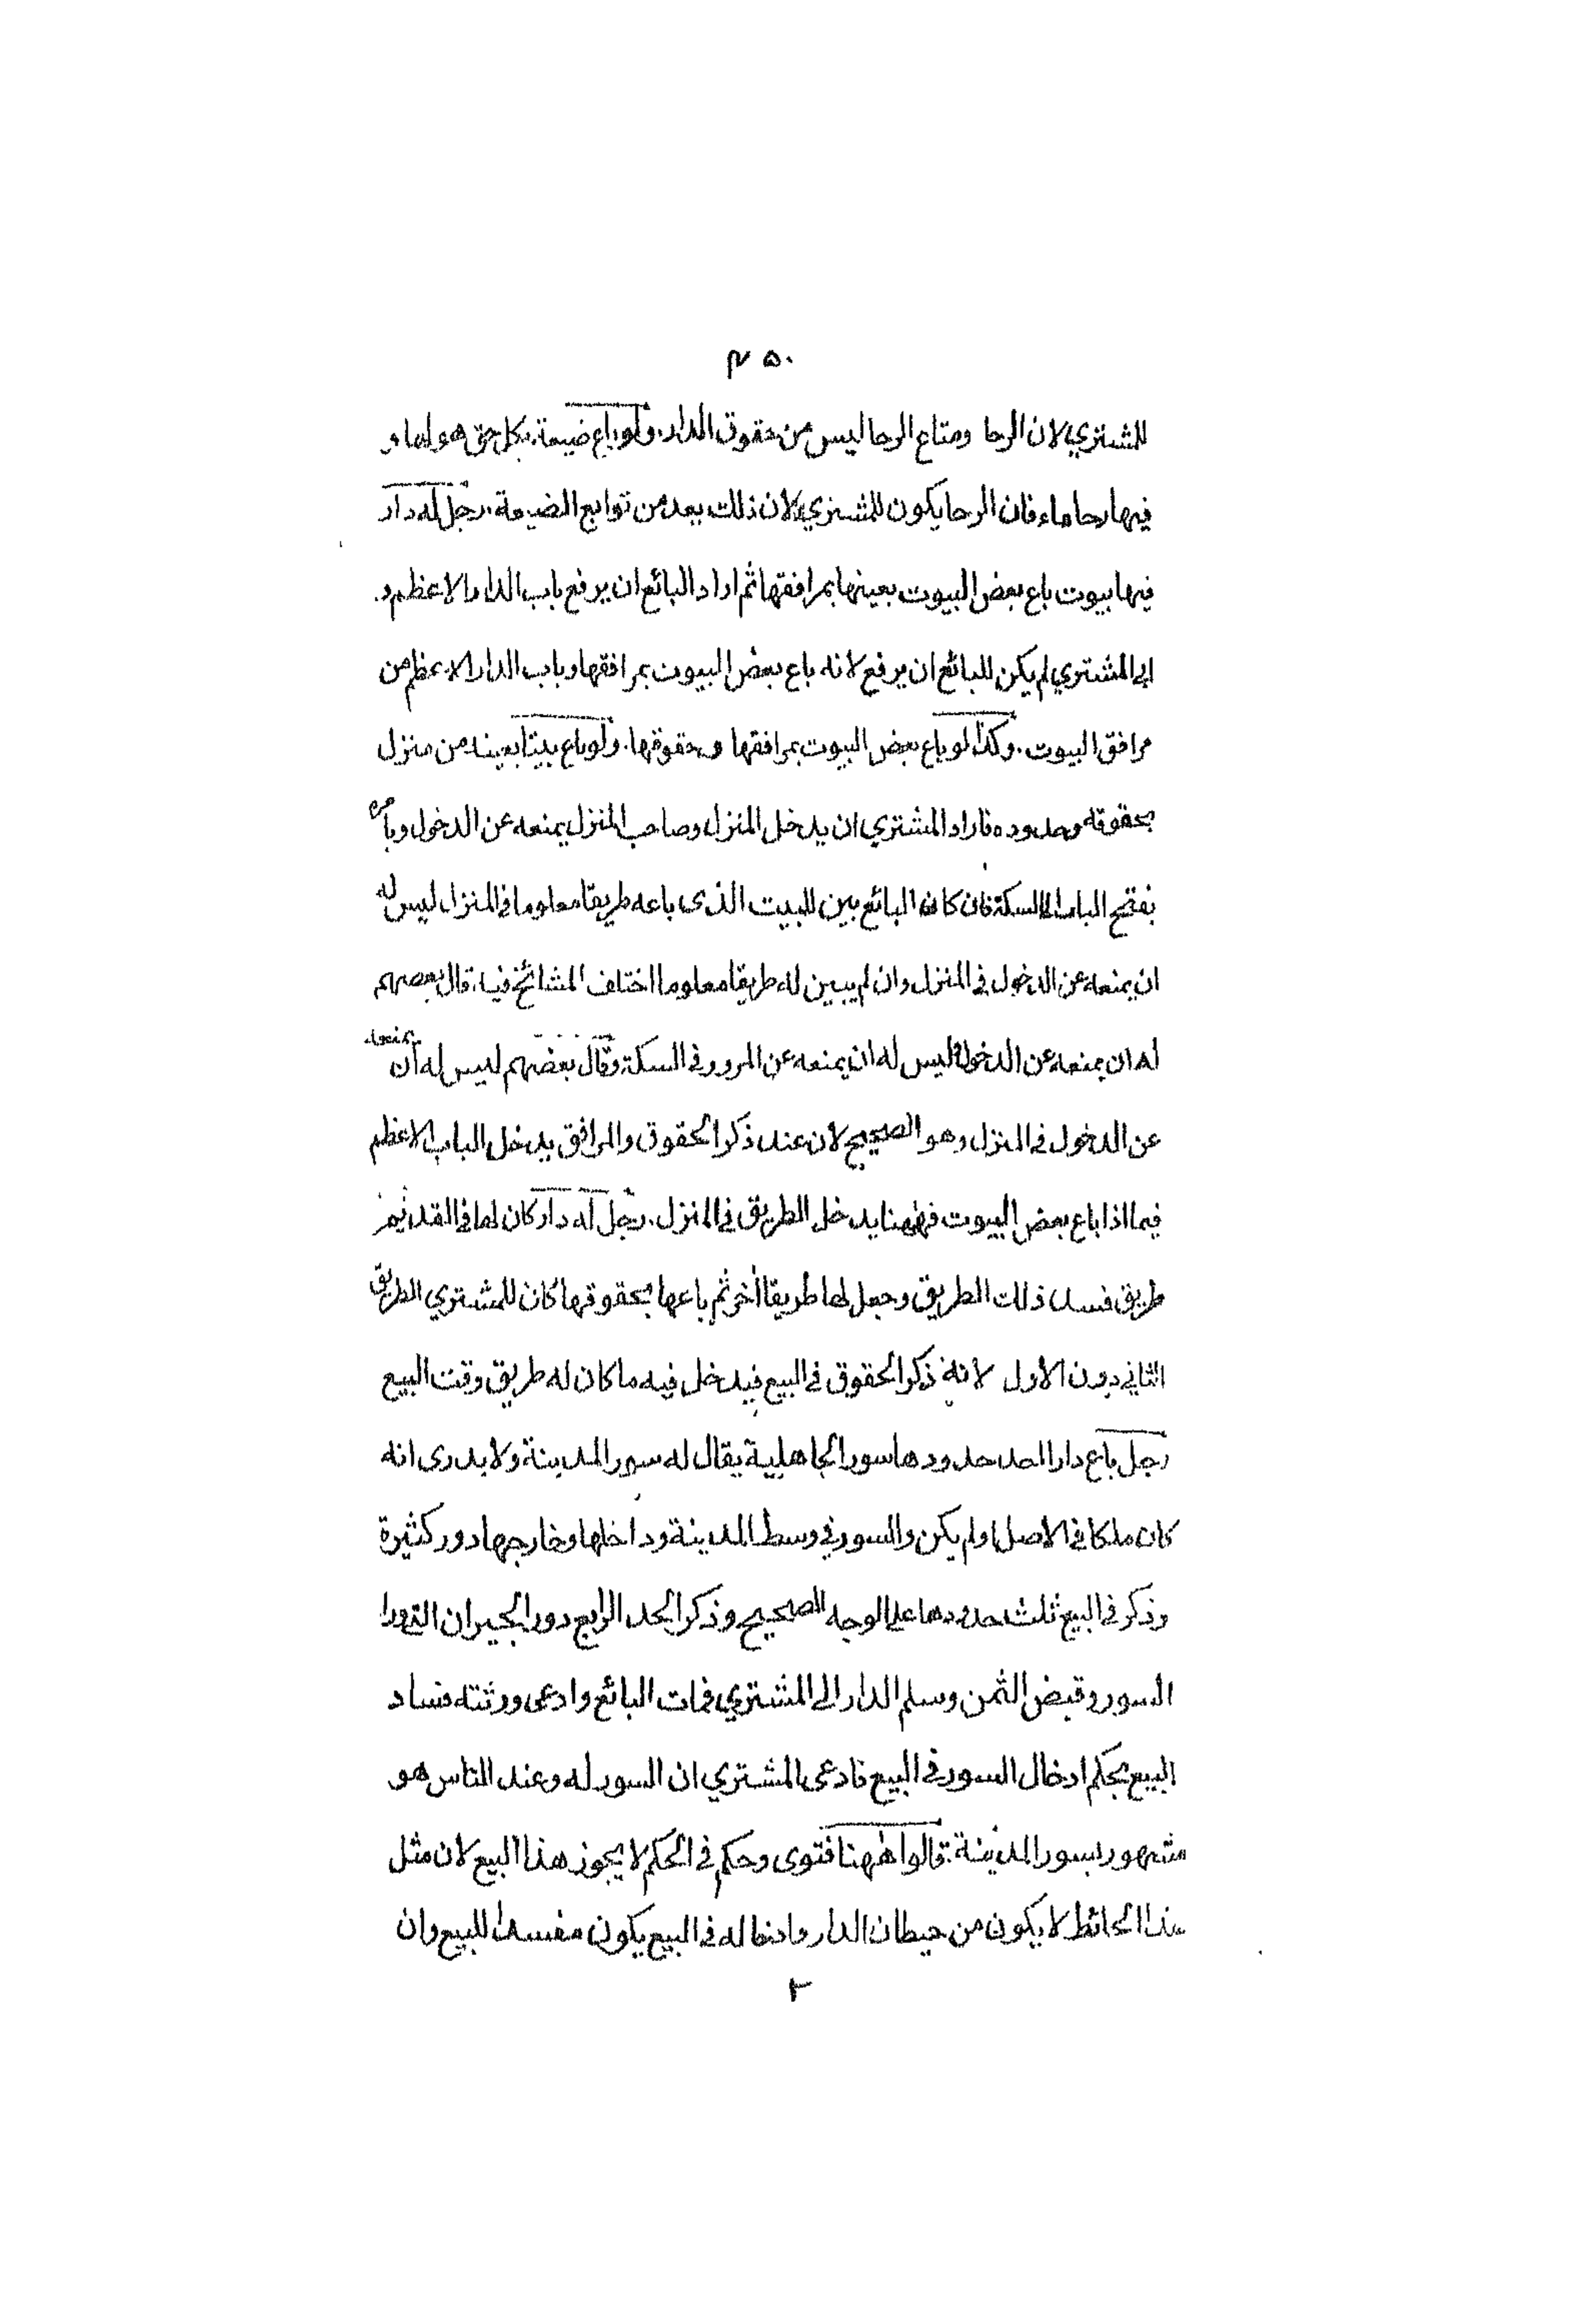 ٤٥٠
للمشتري لان الرحا ومتاع الرحا ليس من حقوق الدار. ولو باع ضيعة بكل حق هو لها و
فيها رحا ماء فان الرحا يكون للمشتري لان ذلك يعد من توابع الضيعة. رجل له دار
فيها بيوت باع بعض البيوت بعينها بمرافقها ثم اراد البائع ان يرفع باب الدار الاعظم و
ابى المشتري لم يكن للبائع ان يرفع لانه باع بعض البيوت بمرافقها وباب الدار الاعظم من
مرافق البيوت. وكذا لو باع بعض البيوت بمرافقها وحقوقها. ولو باع بيتا بعينه من منزل
بحقوقه وحدوده فاراد المشتري ان يدخل المنزل وصاحب المنزل يمنعه عن الدخول ويأمره
بفتح الباب الى السكة فان كان البائع بين للبيت الذى باعه طريقا معلوما في المنزل ليس له
ان يمنعه عن الدخول في المنزل وان لم يبين له طريقا معلوما اختلف المشائخ فيه. قال بعضهم
له ان يمنعه عن الدخول وليس له ان يمنعه عن المرور في السكة وقال بعضهم ليس له ان يمنعه
عن الدخول في المنزل وهو الصحيح لان عند ذكر الحقوق والمرافق يدخل الباب الاعظم
فيما اذا باع بعض البيوت فههنا يدخل الطريق في المنزل. رجل له دار كان لها في القديم
طريق فسد ذلك الطريق وجعل لها طريقا اخر ثم باعها بحقوقها كان للمشتري الطريق
الثاني دون الاول لانه ذكر الحقوق في البيع فيدخل فيه ما كان له طريق وقت البيع
رجل باع دارا احد حدودها سور الجاهلية يقال له سور المدينة ولا يدرى انه
كان ملكا في الاصل او لم يكن والسور في وسط المدينة وداخلها وخارجها دور كثيرة
وذكر في البيع ثلث حدودها على الوجه الصحيح وذكر الحد الرابع دور الجيران التي ورا
السور وقبض الثمن وسلم الدار الى المشتري فمات البائع وادعى ورثته فساد
البيع بحكم ادخال السور في البيع فادعى المشتري ان السور له وعند الناس هو
مشهور بسور المدينة. قالوا ههنا فتوى وحكم في الحكم لا يجوز هذا البيع لان مثل
هذا الحائط لا يكون من حيطان الدار وادخاله في البيع يكون مفسدا للبيع وان
٢